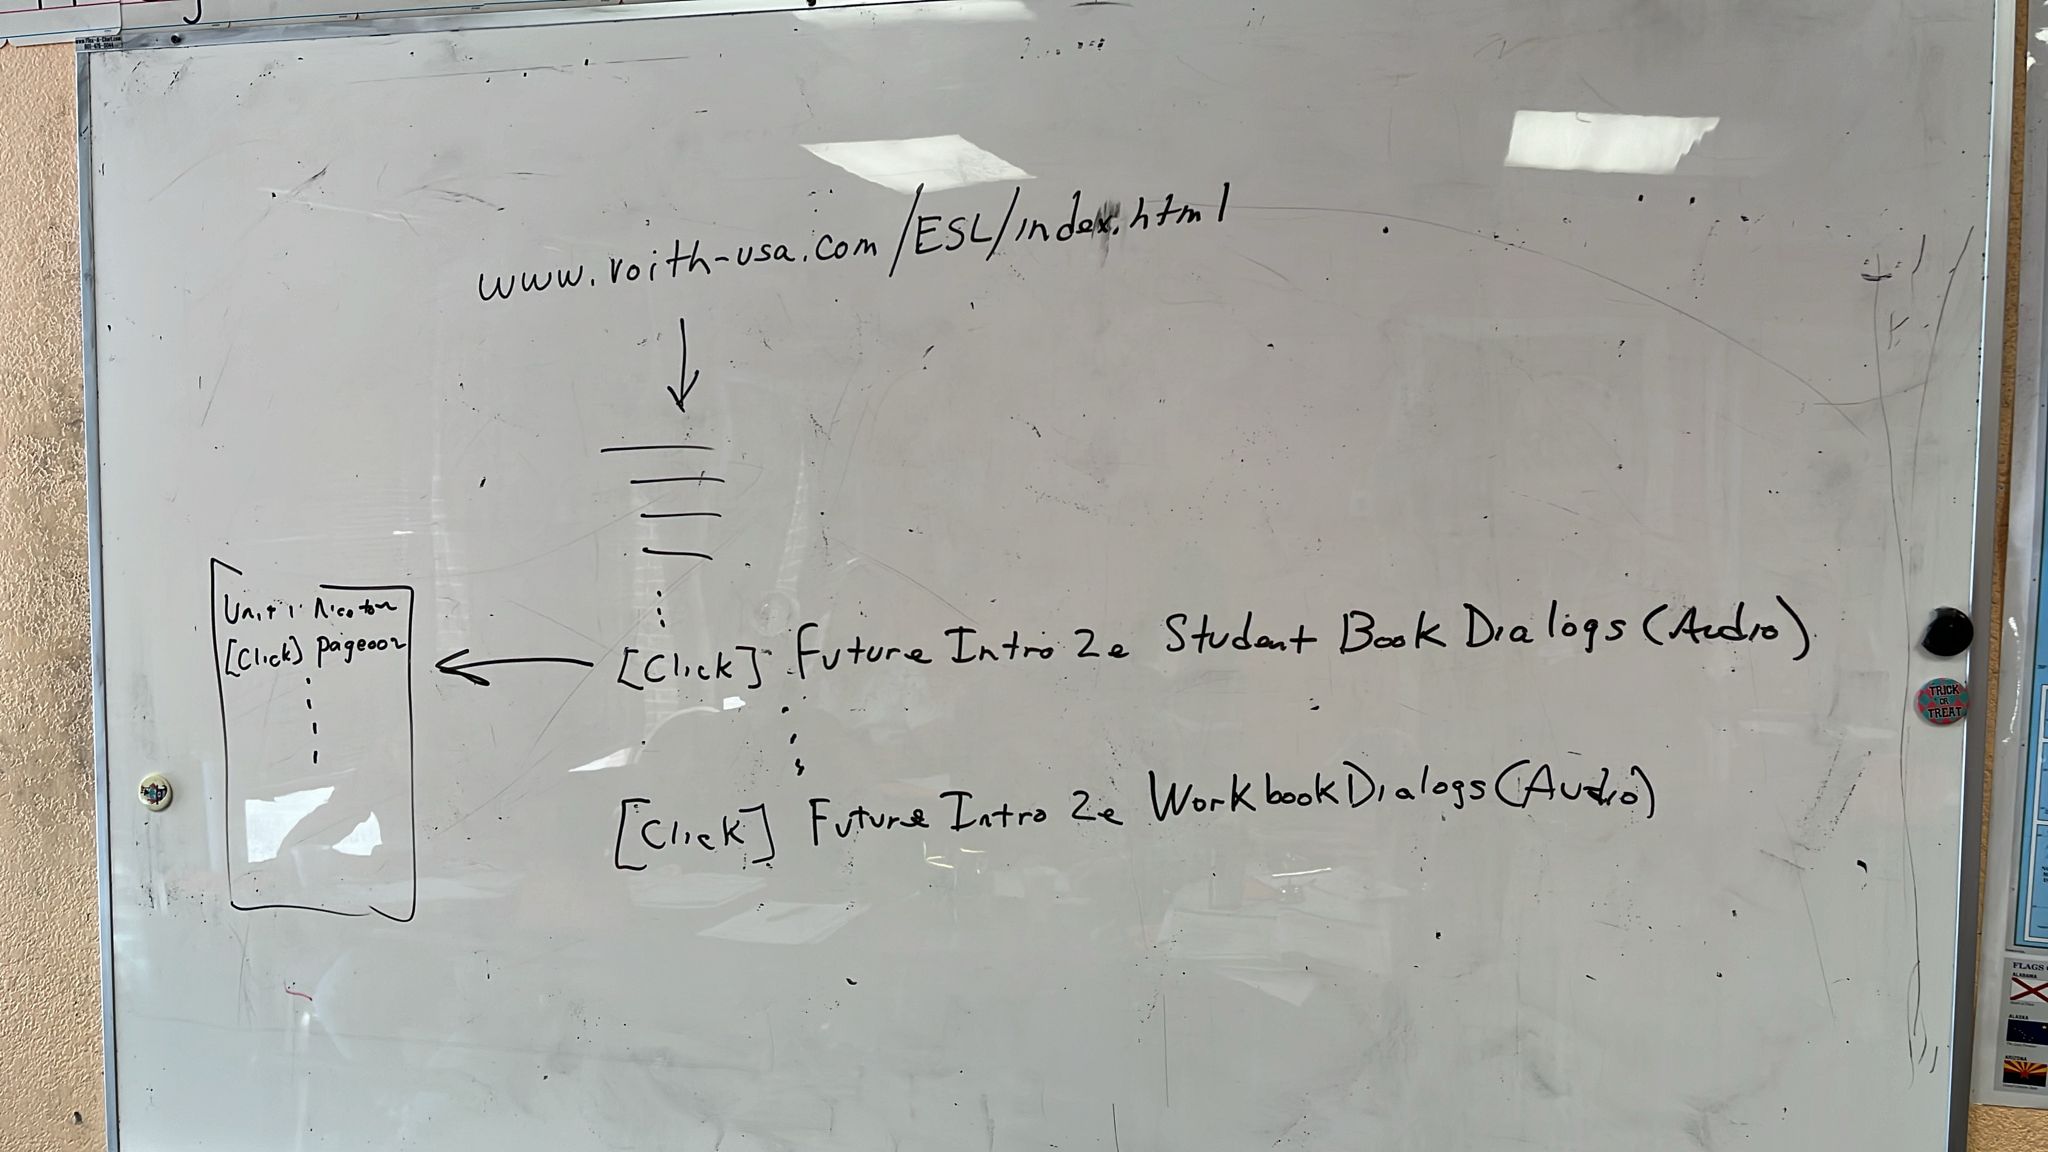 www.roith-usa.com/ESL/index.html
[Click] Future Intro 2e Student Book Dialogs (Audio)
Unit 1
[Click] page002
[Click] Future Intro 2e Workbook Dialogs (Audio)
TRICK
OR
TREAT
FLAGS
ALABAMA
ALASKA
ARIZONA